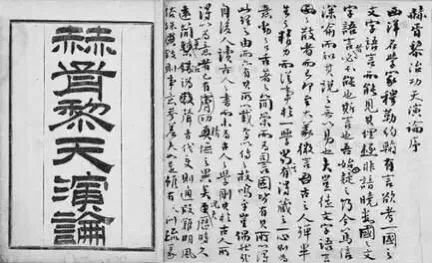 赫胥黎天演論
赫胥黎治功天演論序
西洋名學家穆勒約翰有言欲考一國之
文字語言而能見其理極非諳曉數國之文
字語言必不能也斯言也吾始疑之乃今篤信
深喻而知其說之無以易也夫豈徒文字語言
之散者而已即至大義微言古之人殫畢
生之精力而從事於一學當有得藏之一心則為
動之口舌著之簡策而為詞固皆有其所以得
此理之由而亦有其所以載焉以傳之故嗚呼豈偶然哉
自後人讀古人之書而未嘗為古人之學則於古人所
得以為意者已有之異矣又況歷時久
遠簡牘沿訛聲音代變則通假難明風
俗殊尚則事意參差夫如是雖有訓疏